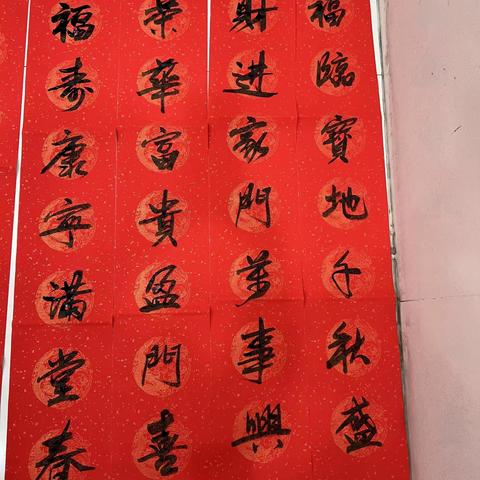 福臨寶地千秋盛
財进家門萬事興
荣華富貴盈門喜
福寿康寧满堂春